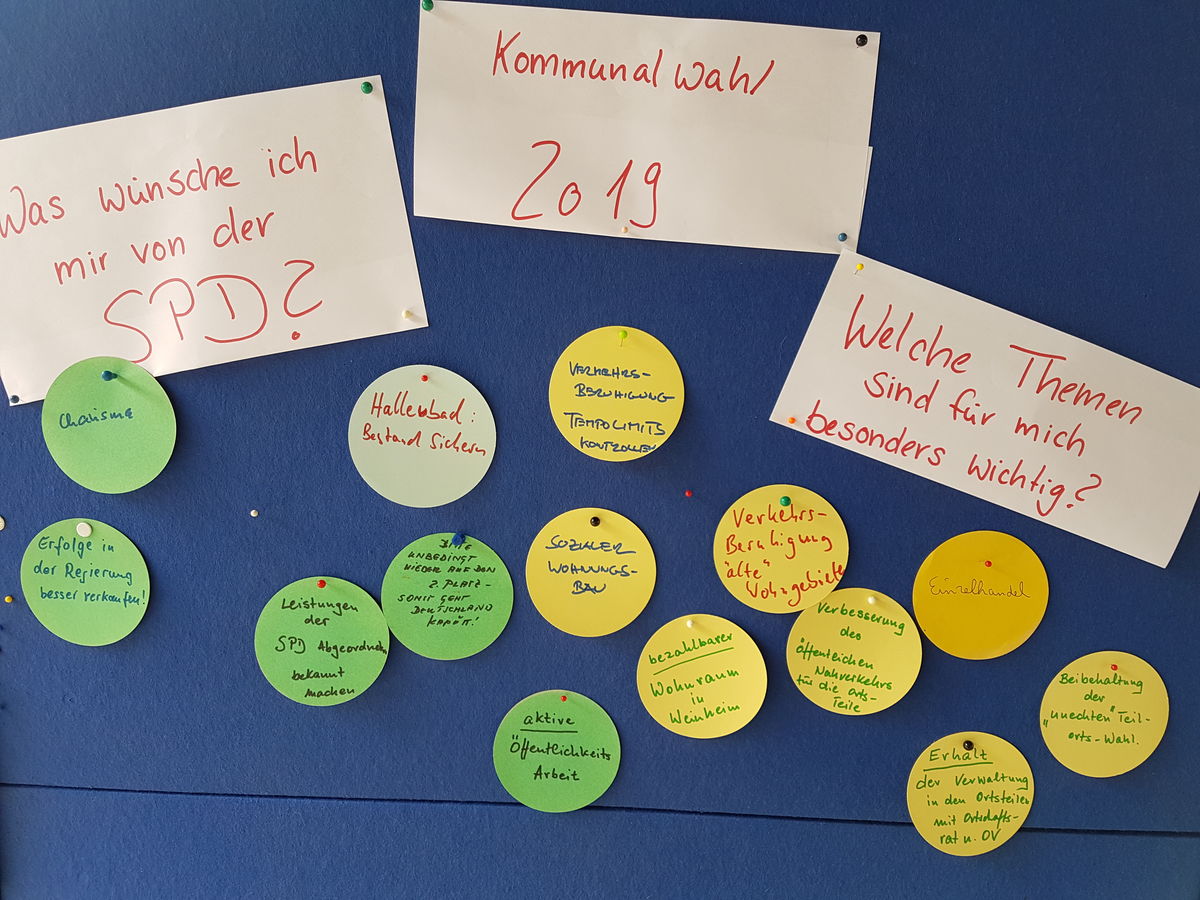 Kommunalwahl
2019
Was wünsche ich
mir von der
SPD?
Welche Themen
sind für mich
besonders wichtig?
Charisma
Erfolge in
der Regierung
besser verkaufen!
Leistungen
der
SPD Abgeordneten
bekannt
machen
BITTE
UNBEDINGT
WIEDER AUF DEN
2. PLATZ -
SONST GEHT
DEUTSCHLAND
KAPUTT!
aktive
Öffentlichkeits
Arbeit
Hallenbad:
Bestand sichern
VERKEHRS-
BERUHIGUNG
TEMPOLIMITS
KONTROLLEN
SOZIALER
WOHNUNGS-
BAU
Verkehrs-
Beruhigung
"alte"
Wohngebiete
bezahlbarer
Wohnraum
in
Weinheim
Verbesserung
des
öffentlichen
Nahverkehrs
für die Orts-
teile
Einzelhandel
Beibehaltung
der
"unechten" Teil-
orts-Wahl.
Erhalt
der Verwaltung
in den Ortsteilen
mit Ortschafts-
rat u. OV